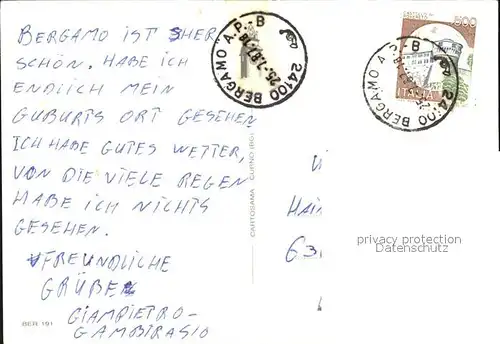 BERGAMO IST SHER
SCHÖN. HABE ICH
ENDLICH MEIN
GUBURTS ORT GESEHEN
ICH HABE GUTES WETTER,
VON DIE VIELE REGEN
HABE ICH NICHTS
GESEHEN.
FREUNDLICHE
GRÜßE
GIAMPIETRO-
GAMBIRASIO
BER 191
24100 BERGAMO A.P.-B
24100 BERGAMO A.P.-B
500
ITALIA
HAI
63
privacy protection
Datenschutz